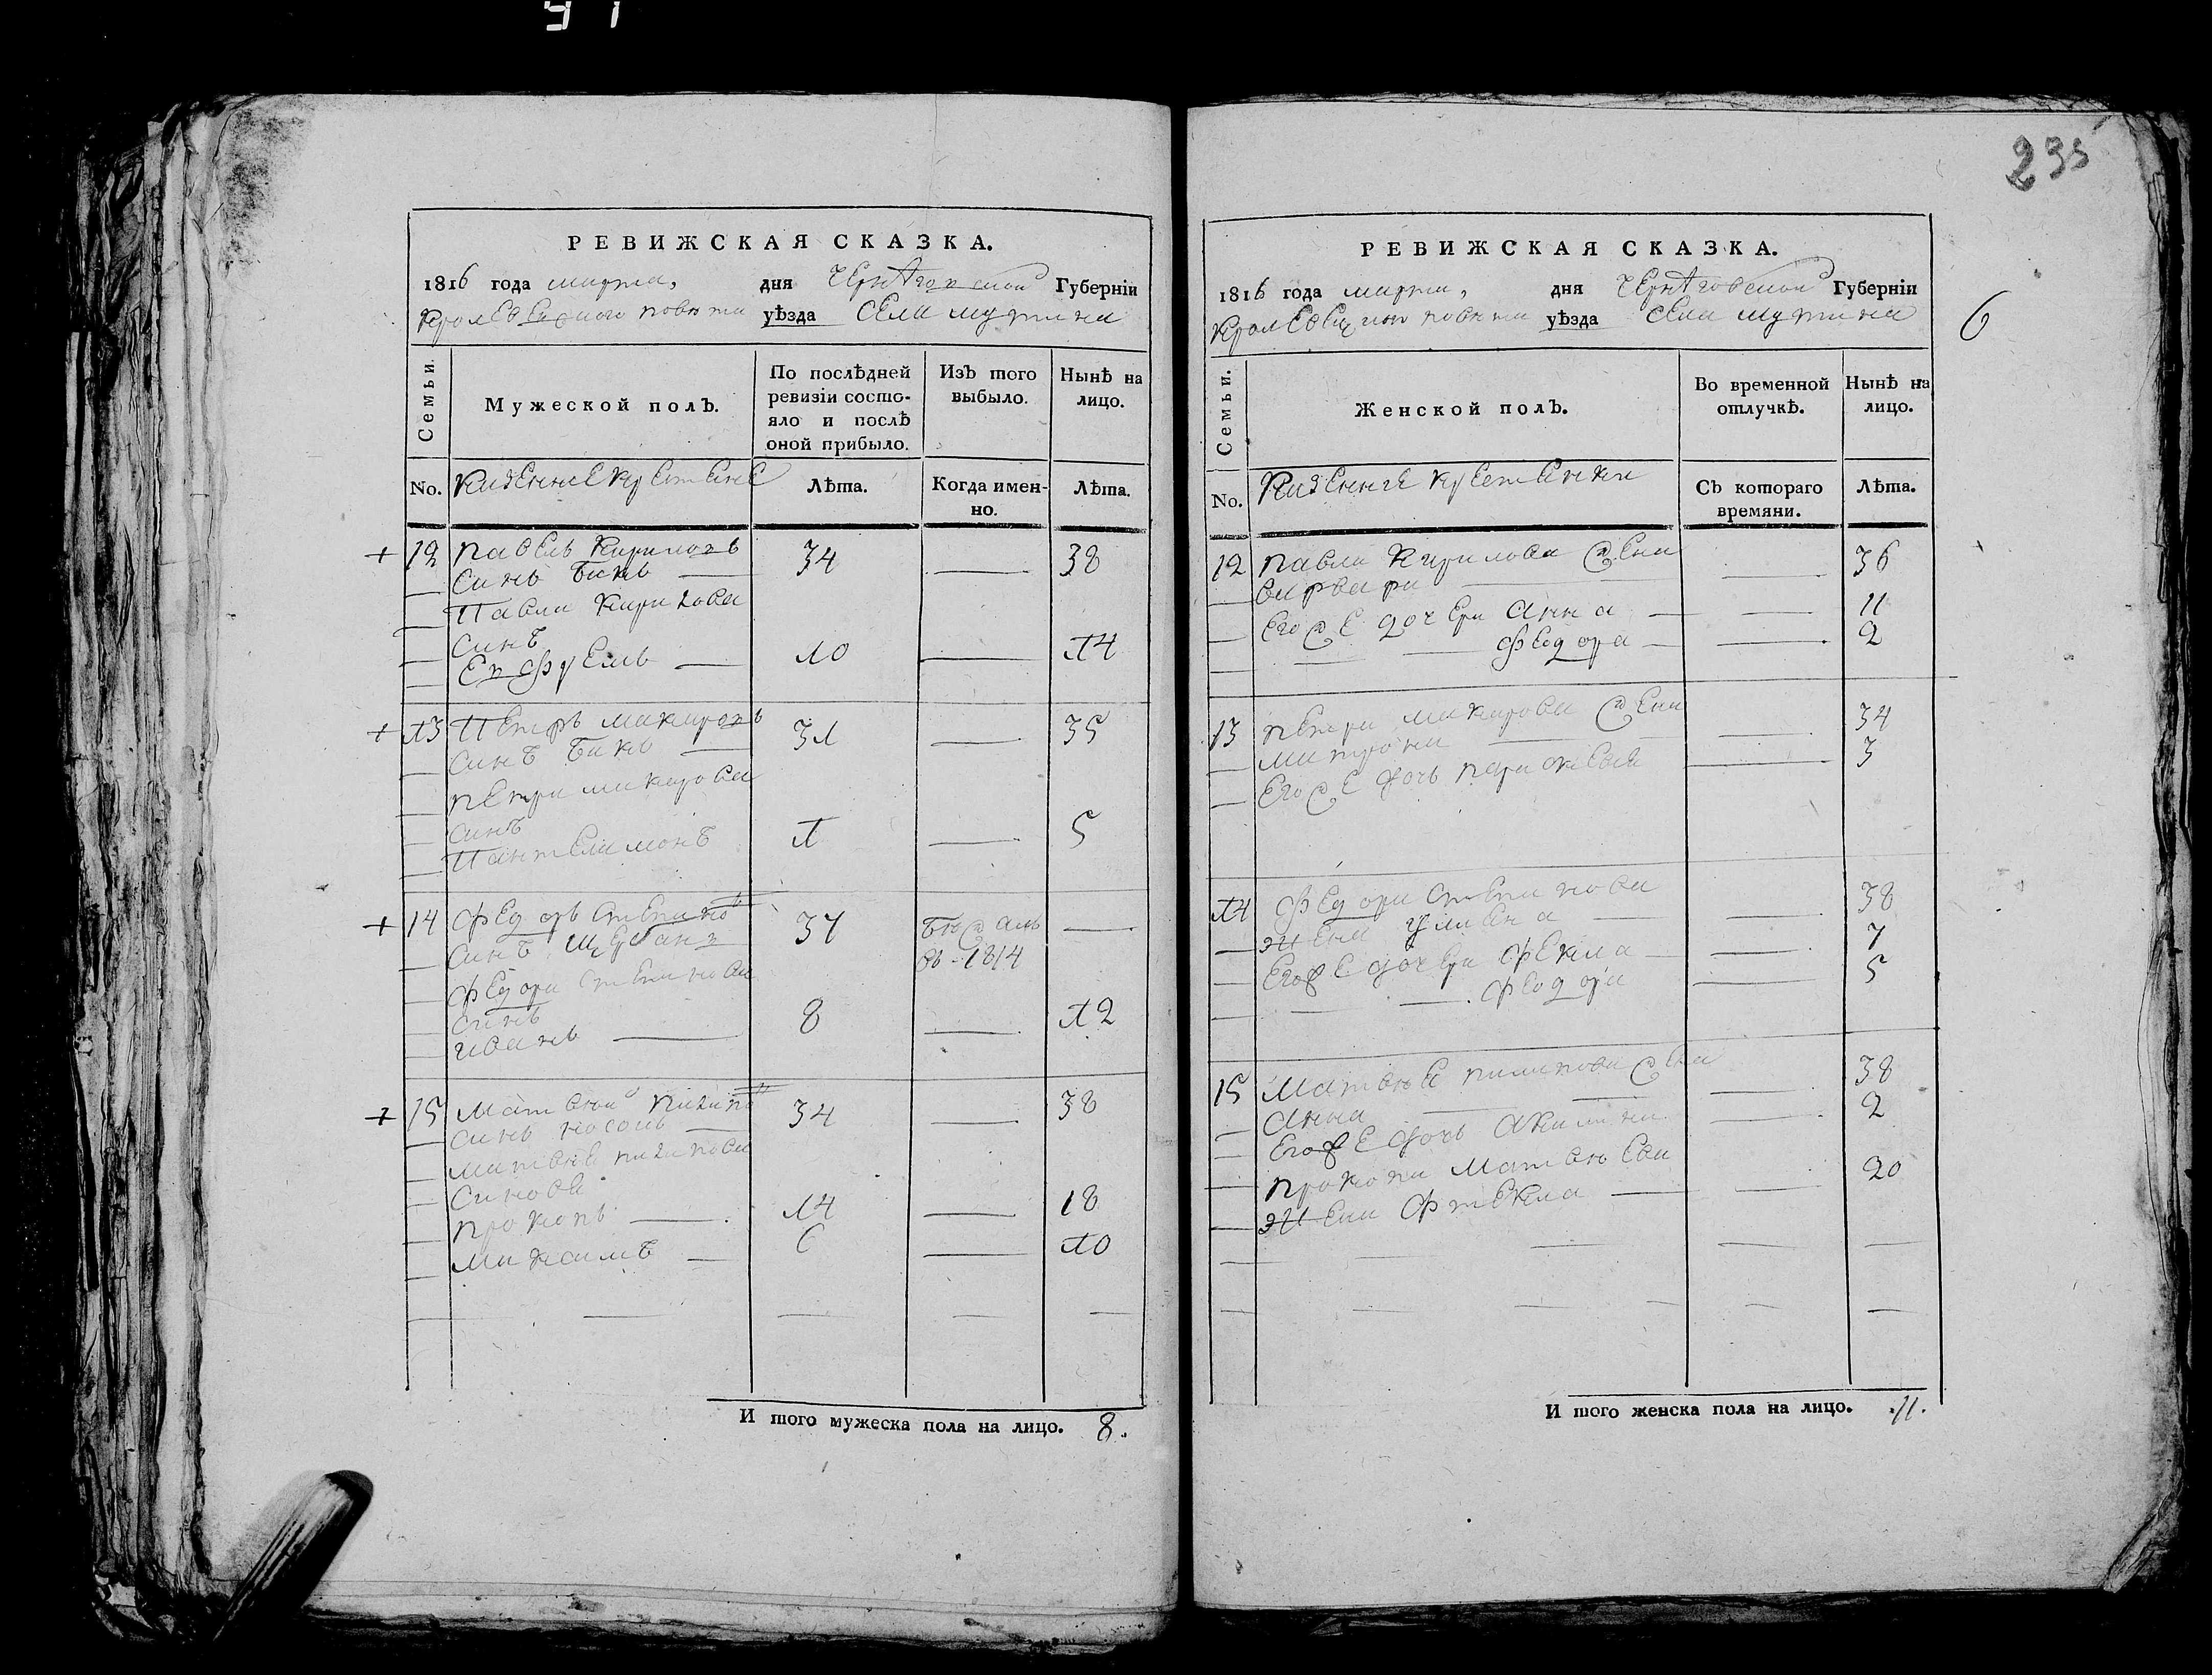 235
РЕВИЖСКАЯ СКАЗКА.
1816 года марта, дня Черниговской Губерніи
Кролевецкого повѣта уѣзда села мутина
Семьи.
Мужеской полъ.
По послѣдней ревизіи состо-
яло и послѣ оной прибыло.
Изъ того выбыло.
Нынѣ на лицо.
No. казенние крестяне
Лѣта.
Когда имен-
но.
Лѣта.
12 павелъ Кириловъ
синъ бикъ 34 38
Павла Кирилова
синъ
10 14
13 Петръ макаровъ
синъ бикъ 31 35
петра макарова
синъ
Пантелимонъ 1 5
14 федоръ степанов
синъ щербанъ 37 бѣжалъ
въ 1814
федора степанова
синъ
иванъ 8 12
15 матвѣй пилипов
синъ носоль 34 38
матвѣя пилипова
синове
прокопъ 14 18
максимъ 6 10
И того мужеска пола на лицо. 8.
РЕВИЖСКАЯ СКАЗКА.
1816 года марта, дня Черниговской Губерніи
Кролевецкого повѣта уѣзда села мутина
6
Семьи.
Женской полъ.
Во временной отлучкѣ.
Нынѣ на лицо.
No. казенние крестянки
Съ котораго времяни.
Лѣта.
12 павла Кирилова жена
варвара 36
его же дочери анна 11
федора 2
13 петра макарова жена
матрона 34
его же дочь парасковия 3
14 федора степанова
жена улияна 38
его же дочери фекла 7
федора 5
15 матвѣя пилипова жена
анна 38
его же дочь акилина 2
прокопа матвѣева
жена фтекла 20
И того женска пола на лицо. 11.